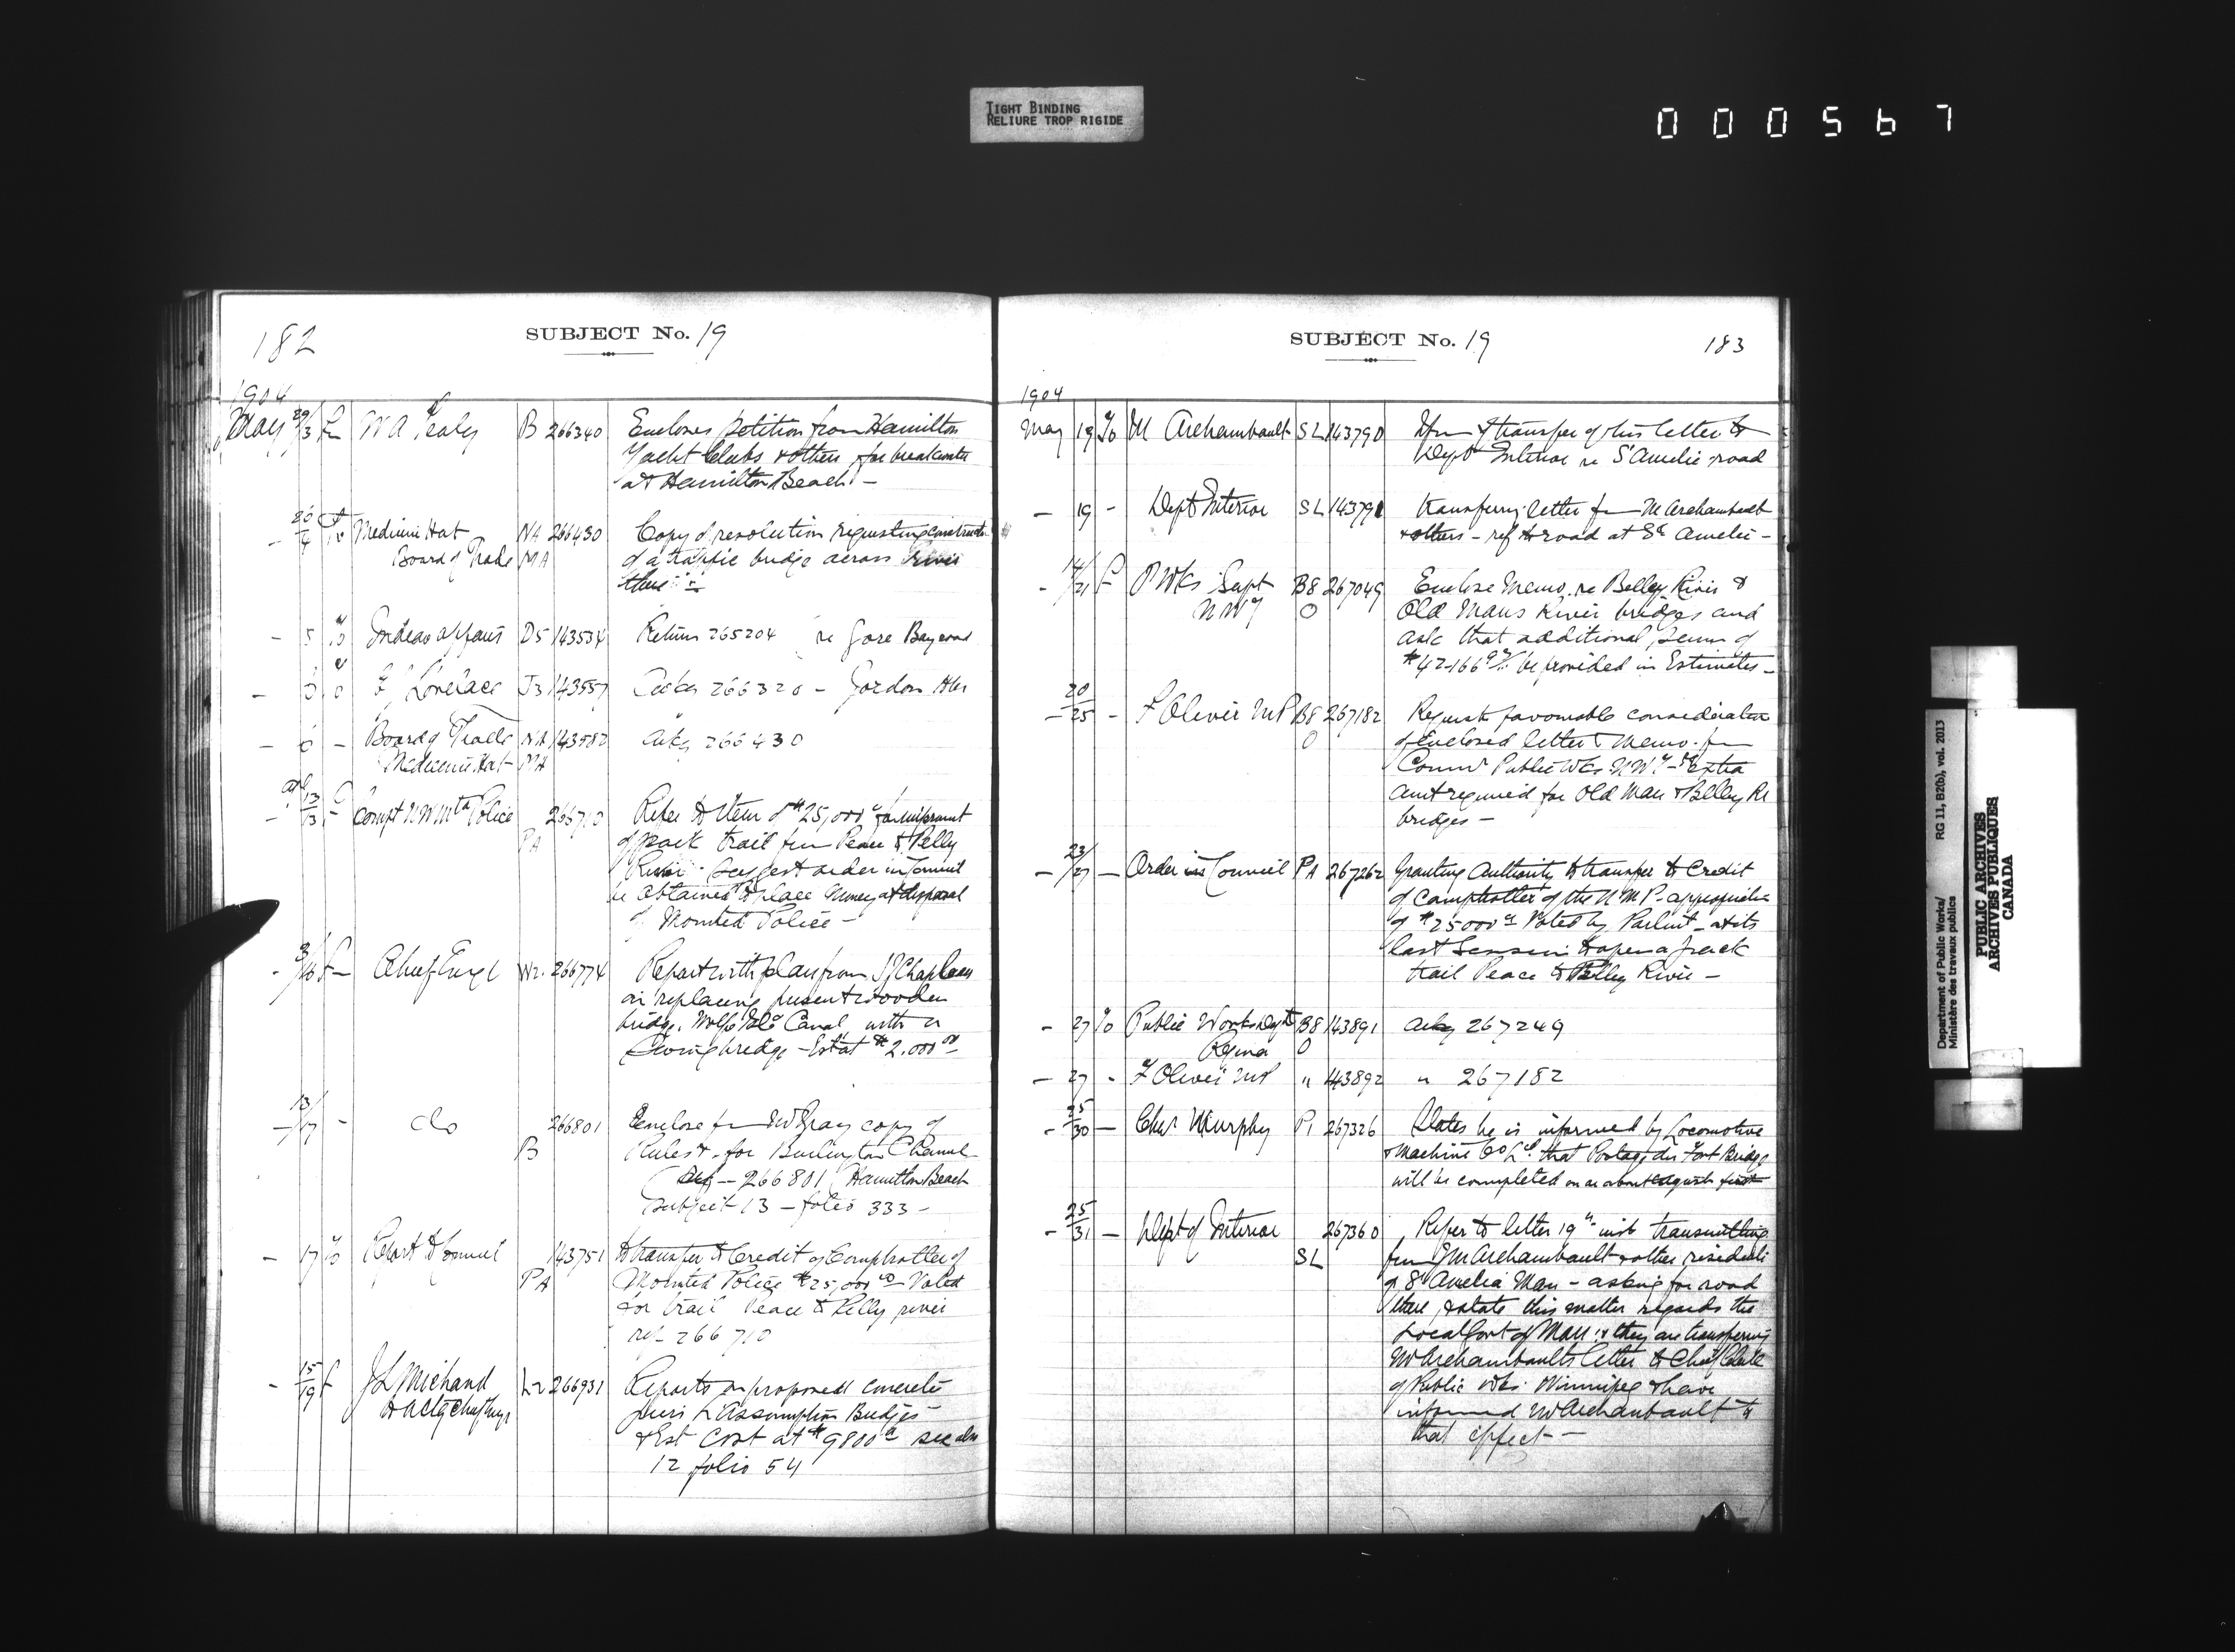 TIGHT BINDING
RELIURE TROP RIGIDE
000567
182
SUBJECT No. 19
1904
May 29/3 fm W A Fraley B 266340 Encloses petition from Hamilton
Yacht Clubs & others for breakwater
at Hamilton Beach. —
— 26/4 fm Medicine Hat NA 266430 Copy of resolution requesting constructn
Board of Trade MA of a traffic bridge across river
there —
— 5 To Indian affairs D5 143534 Return 265204 re Gore Bay road
— 6 To F Lovelace J3 143557 Ackg 266320 — Gordon
— 6 — Board of Trade NA 143582 Ackg 266430
Medicine Hat MA
— 13 f Compt NWMtd Police 266710 Refer to Item of $25,000 for improvmt
PA of pack trail fm Peace to Pelly
River. Suggest order in Council
be obtained to place money at disposal
of Mounted Police —
- 3/16 f— Chief Engr W2. 266774 Report with plan from J J Chapleau
on replacing present wooden
bridge, Wolfe Isld Canal with a
Swing bridge — Est at $2.000 00
— 13/17 - do 266801 Enclose fm W Gray copy of
B Rules &. for Burlington Channel
— 266801 (Hamilton Beach
Subject 13 — folio 333 —
— 17 To Report to Council 143751 to transfer to Credit of Comptroller of
PA Mounted Police $25,000 00 Voted
for trail Peace to Pelly river
ref 266710
- 15/19 f J L Michaud L2 266931 Reports on proposed concrete
Actg Chief Engr piers L'Assumption Bridge
& Est Cost at $9800 see also
12 folio 54
SUBJECT No. 19
183
1904
May 19 To M Archambault SL 143790 Ifm of transfer of his letter to
Dept Interior re St Amelie road
— 19 - Dept Interior SL 143791 transferring letter fm M Archambault
& others — ref to road at Ste Amelie —
- 14/21 f P Wks Supt B8 267049 Enclose Memo. re Belley River &
NWT O Old Mans River bridges and
ask that additional sum of
$42-166 be provided in Estimates —
— 20/25 - F Oliver MP B8 267182 Requests favourable consideration
O of Enclosed letter & Memo. fm
Commr Public Wks. NWT — re Extra
amt required for Old Man & Belley Rr
bridges —
— 23/27 — Order in Council PA 267262 Granting Authority to transfer to Credit
of Comptroller of the N M P. appropriatn
of $25000 Voted by Parlmt — at its
last Session to open a pack
trail Peace to Pelly River —
- 27 To Public Works Dept B8 143891 Ackg 267249
Regina O
— 27 - F Oliver MP " 143892 " 267182
- 25/30 — Chas Murphy P1 267326 States he is informed by Locomotive
& Machine Co Ld. that Portage du Fort Bridge
will be completed on or about August first
- 25/31 — Dept of Interior 267360 Refer to letter 19th inst transmitting
SL fm J M Archambault & other residents
of St Amelia Man — asking for road
there, & state this matter regards the
Local Govt of Man: & they are transferring
M Archambaults letter to Chief Clerk
of Public Wks. Winnipeg & have
informed M Archambault to
that effect —
Department of Public Works/
Ministère des travaux publics
RG 11, B2(b), vol. 2013
PUBLIC ARCHIVES
ARCHIVES PUBLIQUES
CANADA